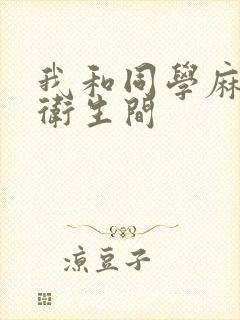 我和同學麻
衛生間
涼豆子